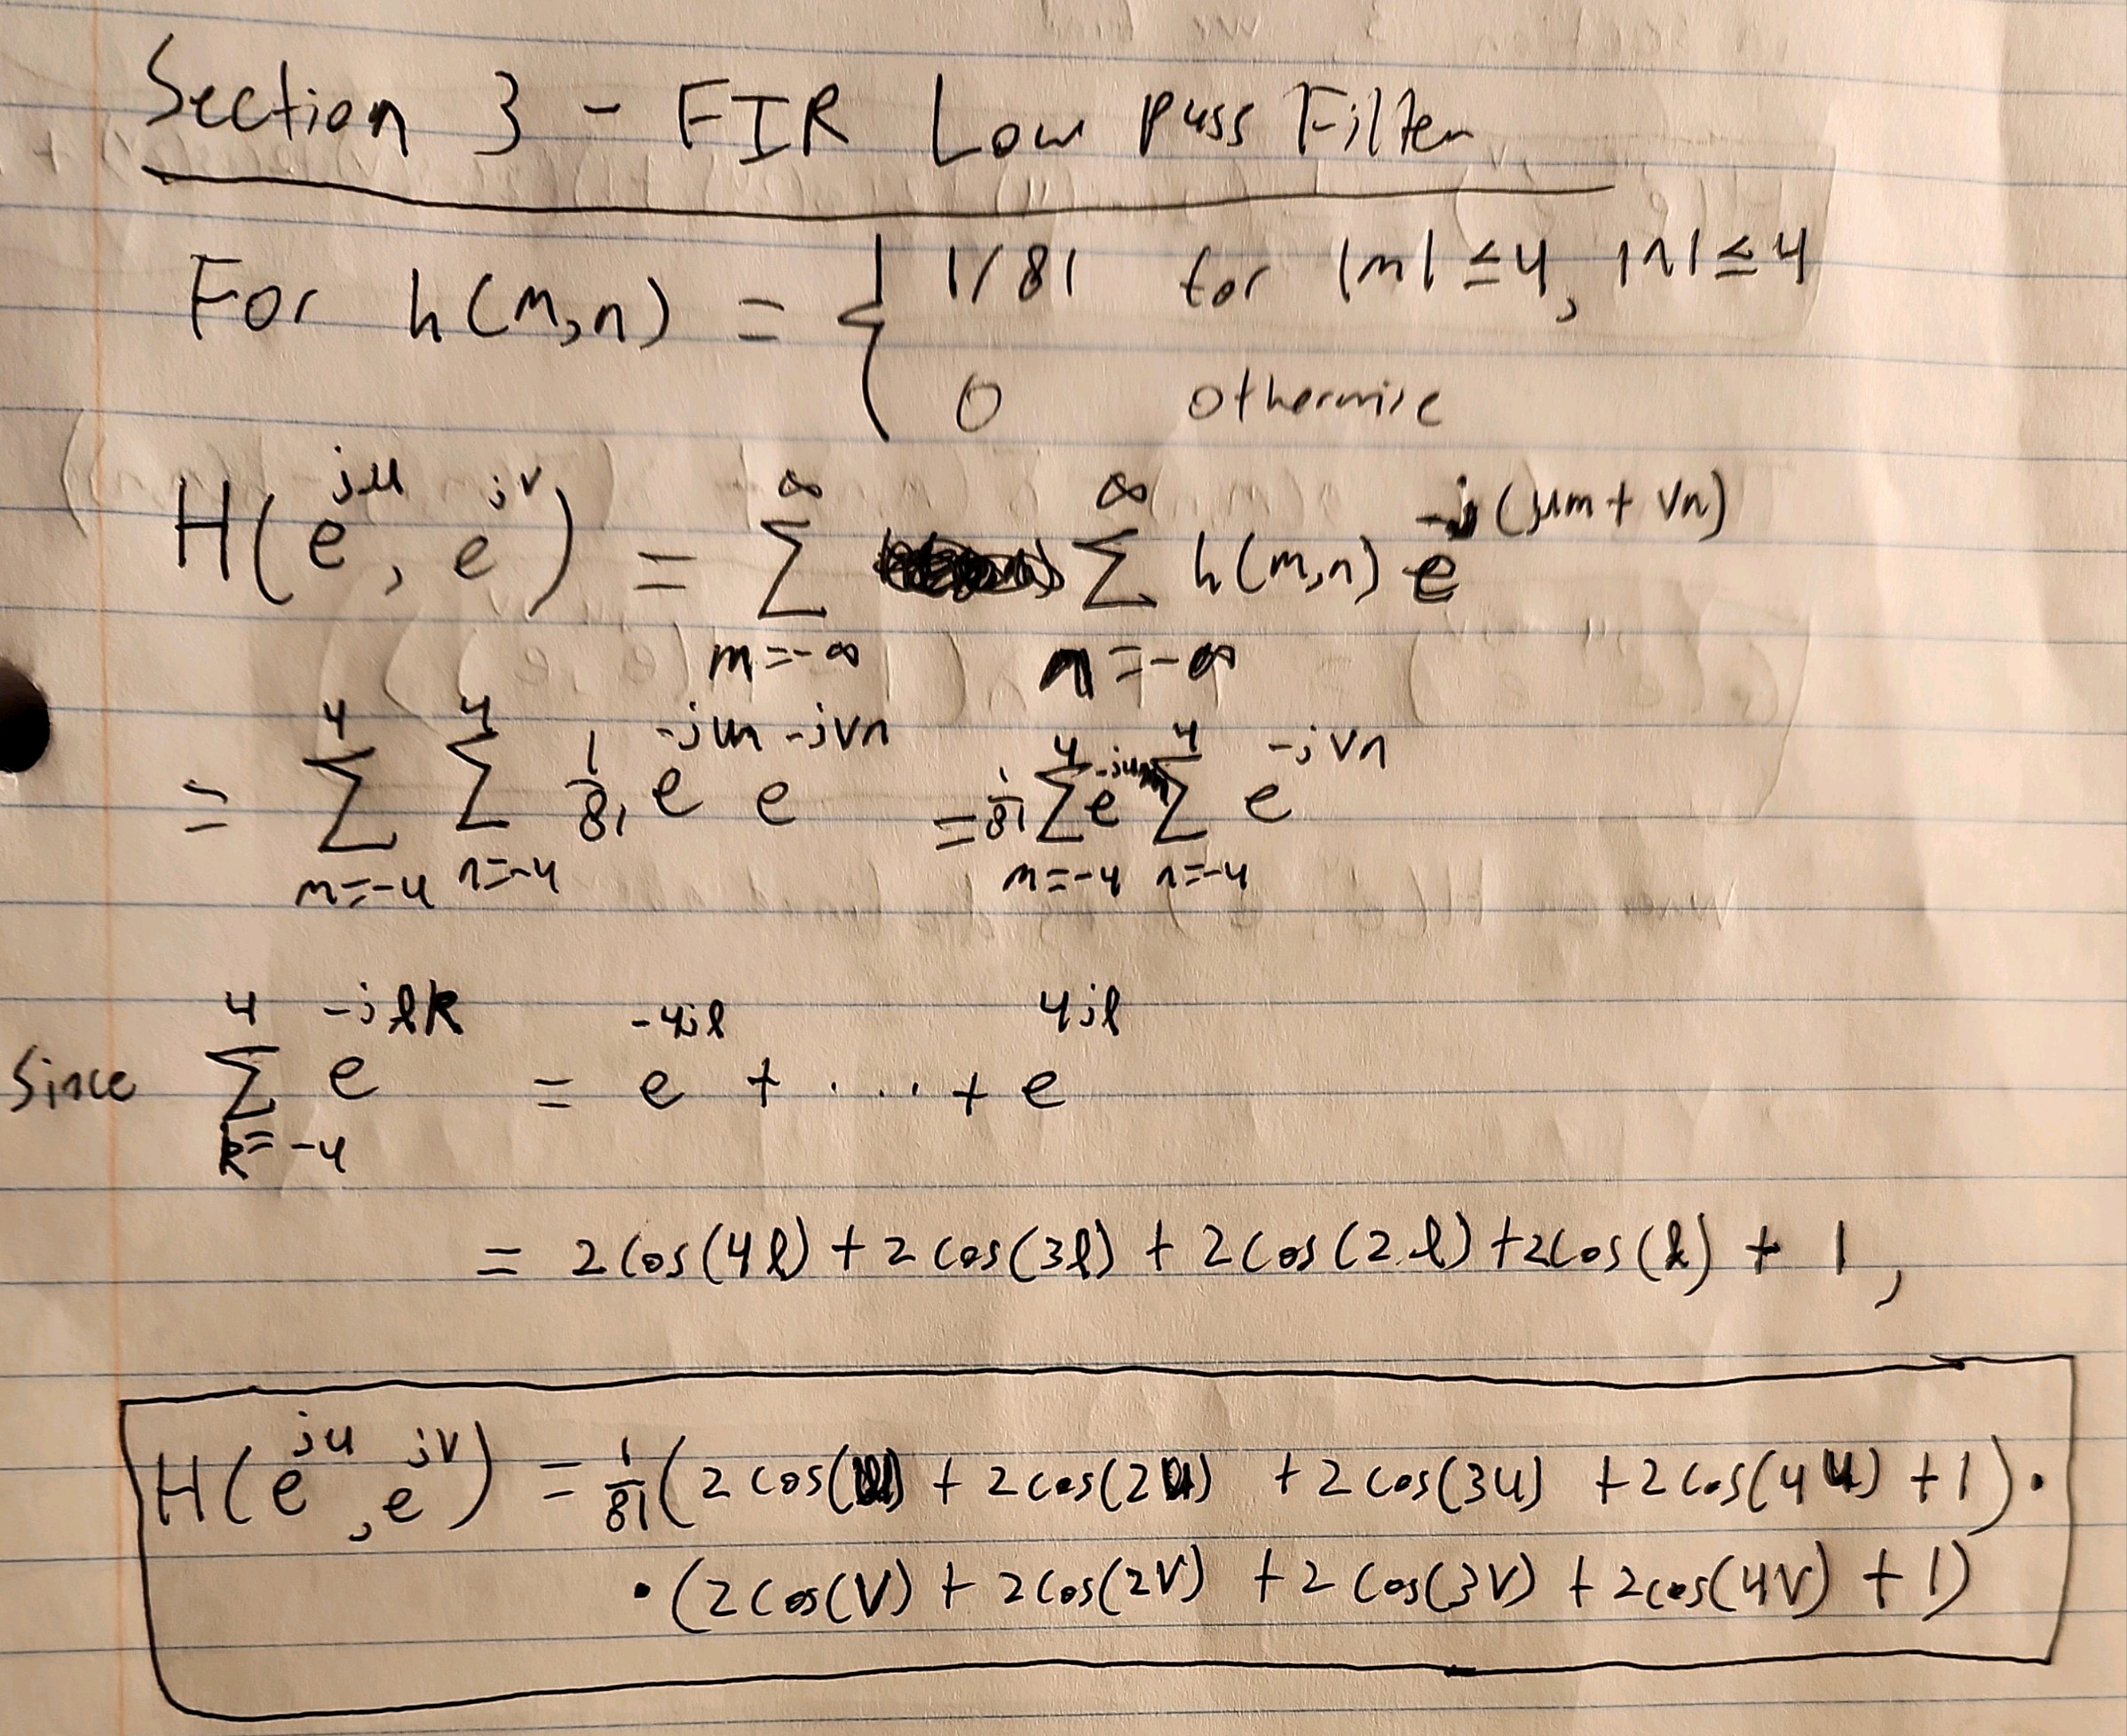 Section 3 - FIR Low pass Filter
For h(m,n) = { 1/81 for |m| ≤ 4, |n| ≤ 4
0 otherwise
H(e^{jμ}, e^{jν}) = ∑_{m=-∞}^{∞} ∑_{n=-∞}^{∞} h(m,n) e^{-j(μm + νn)}
= ∑_{m=-4}^{4} ∑_{n=-4}^{4} 1/81 e^{-jμm} e^{-jνn} = 1/81 ∑_{m=-4}^{4} e^{-jμm} ∑_{n=-4}^{4} e^{-jνn}
Since ∑_{k=-4}^{4} e^{-jℓk} = e^{-4jℓ} + ... + e^{4jℓ}
= 2cos(4ℓ) + 2cos(3ℓ) + 2cos(2ℓ) + 2cos(ℓ) + 1,
H(e^{jμ}, e^{jν}) = 1/81 (2cos(μ) + 2cos(2μ) + 2cos(3μ) + 2cos(4μ) + 1) ·
· (2cos(ν) + 2cos(2ν) + 2cos(3ν) + 2cos(4ν) + 1)